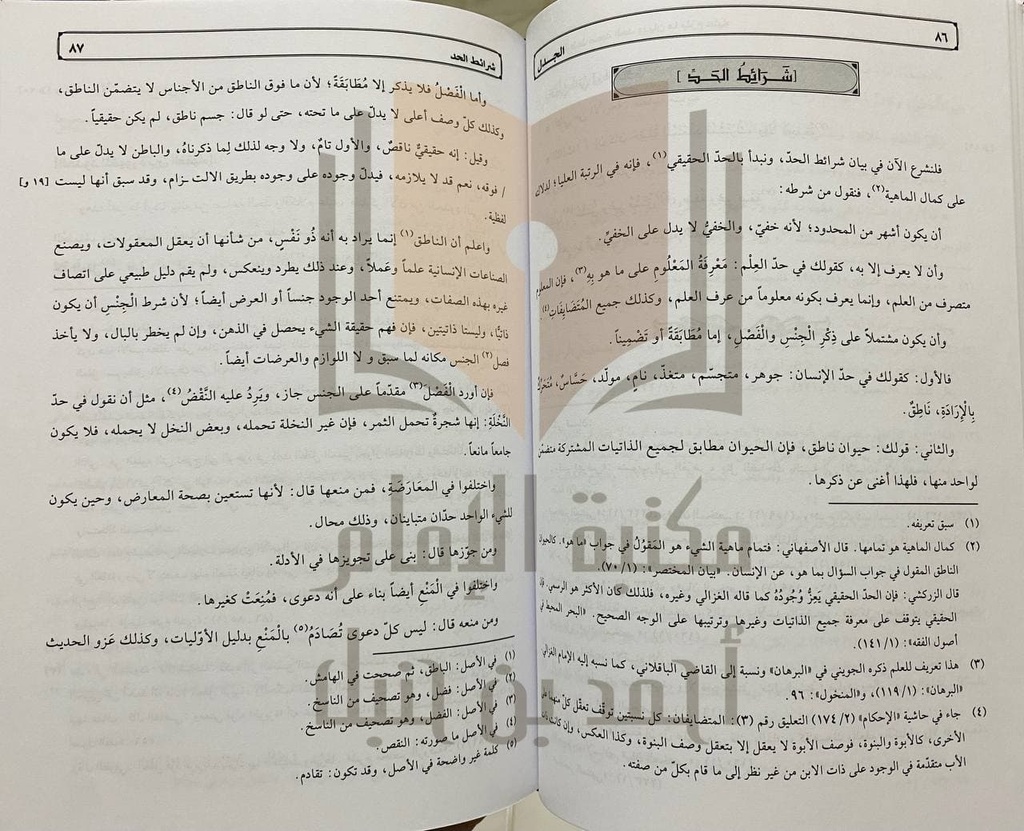 ٨٦
الجدل
[شَرَائطُ الحَدّ]
فلنشرع الآن في بيان شرائط الحدّ، ونبدأ بالحدّ الحقيقي(١)، فإنه في الرتبة العليا؛
على كمال الماهية(٢)، فنقول من شرطه:
أن يكون أشهر من المحدود؛ لأنه خفيّ، والخفيُّ لا يدل على الخفيّ.
وأن لا يعرف إلا به، كقولك في حدّ العِلْم: مَعْرِفَةُ المَعْلُومِ على ما هو بِهِ(٣)، فإن
متصرف من العلم، وإنما يعرف بكونه معلوماً من عرف العلم، وكذلك جميع المُتَضَايِفَاتِ(٤).
وأن يكون مشتملاً على ذِكْرِ الجِنْسِ والْفَصْلِ، إما مُطَابَقَةً أو تَضْمِيناً.
فالأول: كقولك في حدّ الإنسان: جوهر، متجسّم، متغذّ، نامٍ، مولّد، حَسَّاس،
بِالْإِرَادَةِ، نَاطِقٌ.
والثاني: قولك: حيوان ناطق، فإن الحيوان مطابق لجميع الذاتيات المشتركة
لواحد منها، فلهذا أغنى عن ذكرها.
(١) سبق تعريفه.
(٢) كمال الماهية هو تمامها. قال الأصفهاني: فتمام ماهية الشيء هو المَقُوْلُ في جواب «ما هو». كالحيوان
الناطق المقول في جواب السؤال بما هو، عن الإنسان. «بيان المختصر»: (٧٠/١).
قال الزركشي: فإن الحدّ الحقيقي يَعِزُّ وُجُودُهُ كما قاله الغزالي وغيره، فلذلك كان الأكثر هو الرسمي.
الحقيقي يتوقف على معرفة جميع الذاتيات وغيرها وترتيبها على الوجه الصحيح. «البحر المحيط في
أصول الفقه»: (١٤١/١).
(٣) هذا تعريف للعلم ذكره الجويني في «البرهان» ونسبة إلى القاضي الباقلاني، كما نسبه إليه الإمام الغزالي
«البرهان»: (١١٩/١)، و«المنخول»: ٩٦.
(٤) جاء في حاشية «الإحكام» (١٧٤/٢) التعليق رقم (٣): المتضايفان: كل نسبتين توقف تعقل كلّ منهما
الأخرى، كالأبوة والبنوة، فوصف الأبوة لا يعقل إلا بتعقل وصف البنوة، وكذا العكس، وإن كانت
الأب متقدّمة في الوجود على ذات الابن من غير نظر إلى ما قام بكلّ من صفته.
شرائط الحد
٨٧
وأما الْفَصْلُ فلا يذكر إلا مُطَابَقَةً؛ لأن ما فوق الناطق من الأجناس لا يتضمّن الناطق،
وكذلك كلّ وصف أعلى لا يدلّ على ما تحته، حتى لو قال: جسم ناطق، لم يكن حقيقياً.
وقيل: إنه حقيقيٌّ ناقصٌ، والأول تامٌ، ولا وجه لذلك لِما ذكرناهُ، والباطن لا يدلّ على ما
/ فوقه، نعم قد لا يلازمه، فيدلّ وجوده على وجوده بطريق الالتـزام، وقد سبق أنها ليست [١٩ و]
لفظية.
واعلم أن الناطق(١) إنما يراد به أنه ذُو نَفْسٍ، من شأنها أن يعقل المعقولات، ويصنع
الصناعات الإنسانية علماً وعَملاً، وعند ذلك يطرد وينعكس، ولم يقم دليل طبيعي على اتصاف
غيره بهذه الصفات، ويمتنع أحد الوجود جنساً أو العرض أيضاً؛ لأن شرط الْجِنْسِ أن يكون
ذاتيّاً، وليستا ذاتيتين، فإن فهم حقيقة الشيء يحصل في الذهن، وإن لم يخطر بالبال، ولا يأخذ
فصل(٢) الجنس مكانه لما سبق و لا اللوازم والعرضات أيضاً.
فإن أورد الْفَصْلَ(٣) مقدّماً على الجنس جاز، ويَرِدُ عليه النَّقْضُ(٤)، مثل أن نقول في حدّ
النَّخْلَةِ: إنها شجرةٌ تحمل الثمر، فإن غير النخلة تحمله، وبعض النخل لا يحمله، فلا يكون
جامعاً مانعاً.
واختلفوا في المعَارَضَةِ، فمن منعها قال: لأنها تستعين بصحة المعارض، وحين يكون
للشيء الواحد حدّان متباينان، وذلك محال.
ومن جوّزها قال: بنى على تجويزها في الأدلة.
واختلفوا في الْمَنْعِ أيضاً بناء على أنه دعوى، فمُنِعَتْ كغيرها.
ومن منعه قال: ليس كلّ دعوى تُصَادَمُ(٥) بالْمَنْعِ بدليل الأوّليات، وكذلك عَزو الحديث
(١) في الأصل: الباطق، ثم صححت في الهامش.
(٢) في الأصل: فضل، وهو تصحيف من الناسخ.
(٣) في الأصل: الفضل، وهو تصحيف من الناسخ.
(٤) في الأصل ما صورته: النقص.
(٥) كلمة غير واضحة في الأصل، وقد تكون: تقادم.
مكتبة الإمام
أحمد بن حنبل